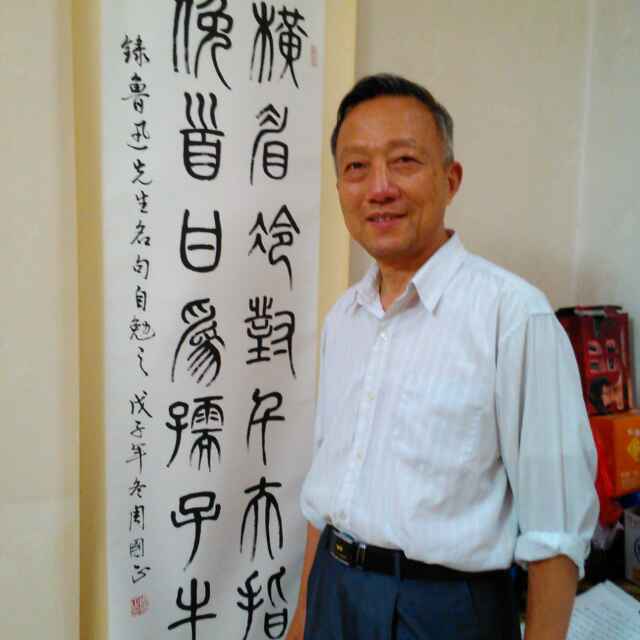 橫眉冷對千夫指
俛首甘為孺子牛
録魯迅先生名句自勉之 戊子年冬周國正